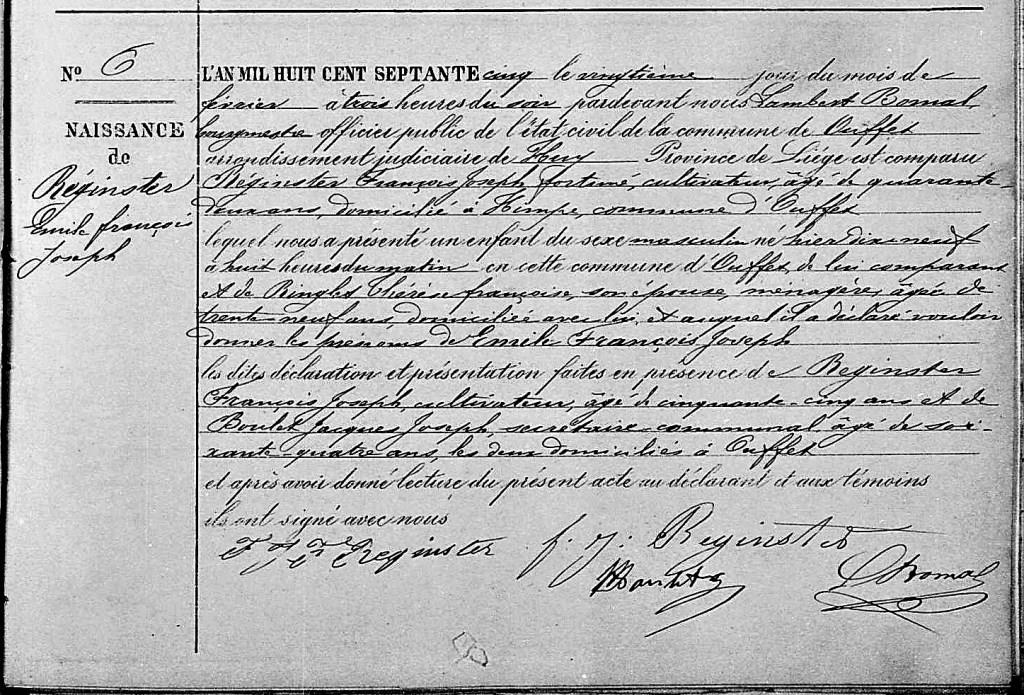 Nº 6
NAISSANCE
de
Réginster
Emile françois
Joseph
L'AN MIL HUIT CENT SEPTANTE cinq le vingtième jour du mois de
février à trois heures du soir pardevant nous Lambert Bomal,
bourgmestre officier public de l'état civil de la commune de Ouffet
arrondissement judiciaire de Huy Province de Liége est comparu
Réginster François Joseph, fortuné, cultivateur, âgé de quarante-
deux ans, domicilié à Himpe, commune d'Ouffet
lequel nous a présenté un enfant du sexe masculin né hier dix-neuf
à huit heures du matin en cette commune d'Ouffet, de lui comparant
et de Ringlet Thérèse françoise, son épouse, ménagère, âgée de
trente-neuf ans, domiciliée avec lui, et auquel il a déclaré vouloir
donner les prénoms de Emile François Joseph
les dites déclaration et présentation faites en présence de Reginster
François Joseph, cultivateur, âgé de cinquante-cinq ans et de
Boulet Jacques Joseph, secrétaire communal, âgé de soi-
xante-quatre ans, les deux domiciliés à Ouffet
et après avoir donné lecture du présent acte au déclarant et aux témoins
ils ont signé avec nous
F J F Reginster f. J. Reginster
L Bomal